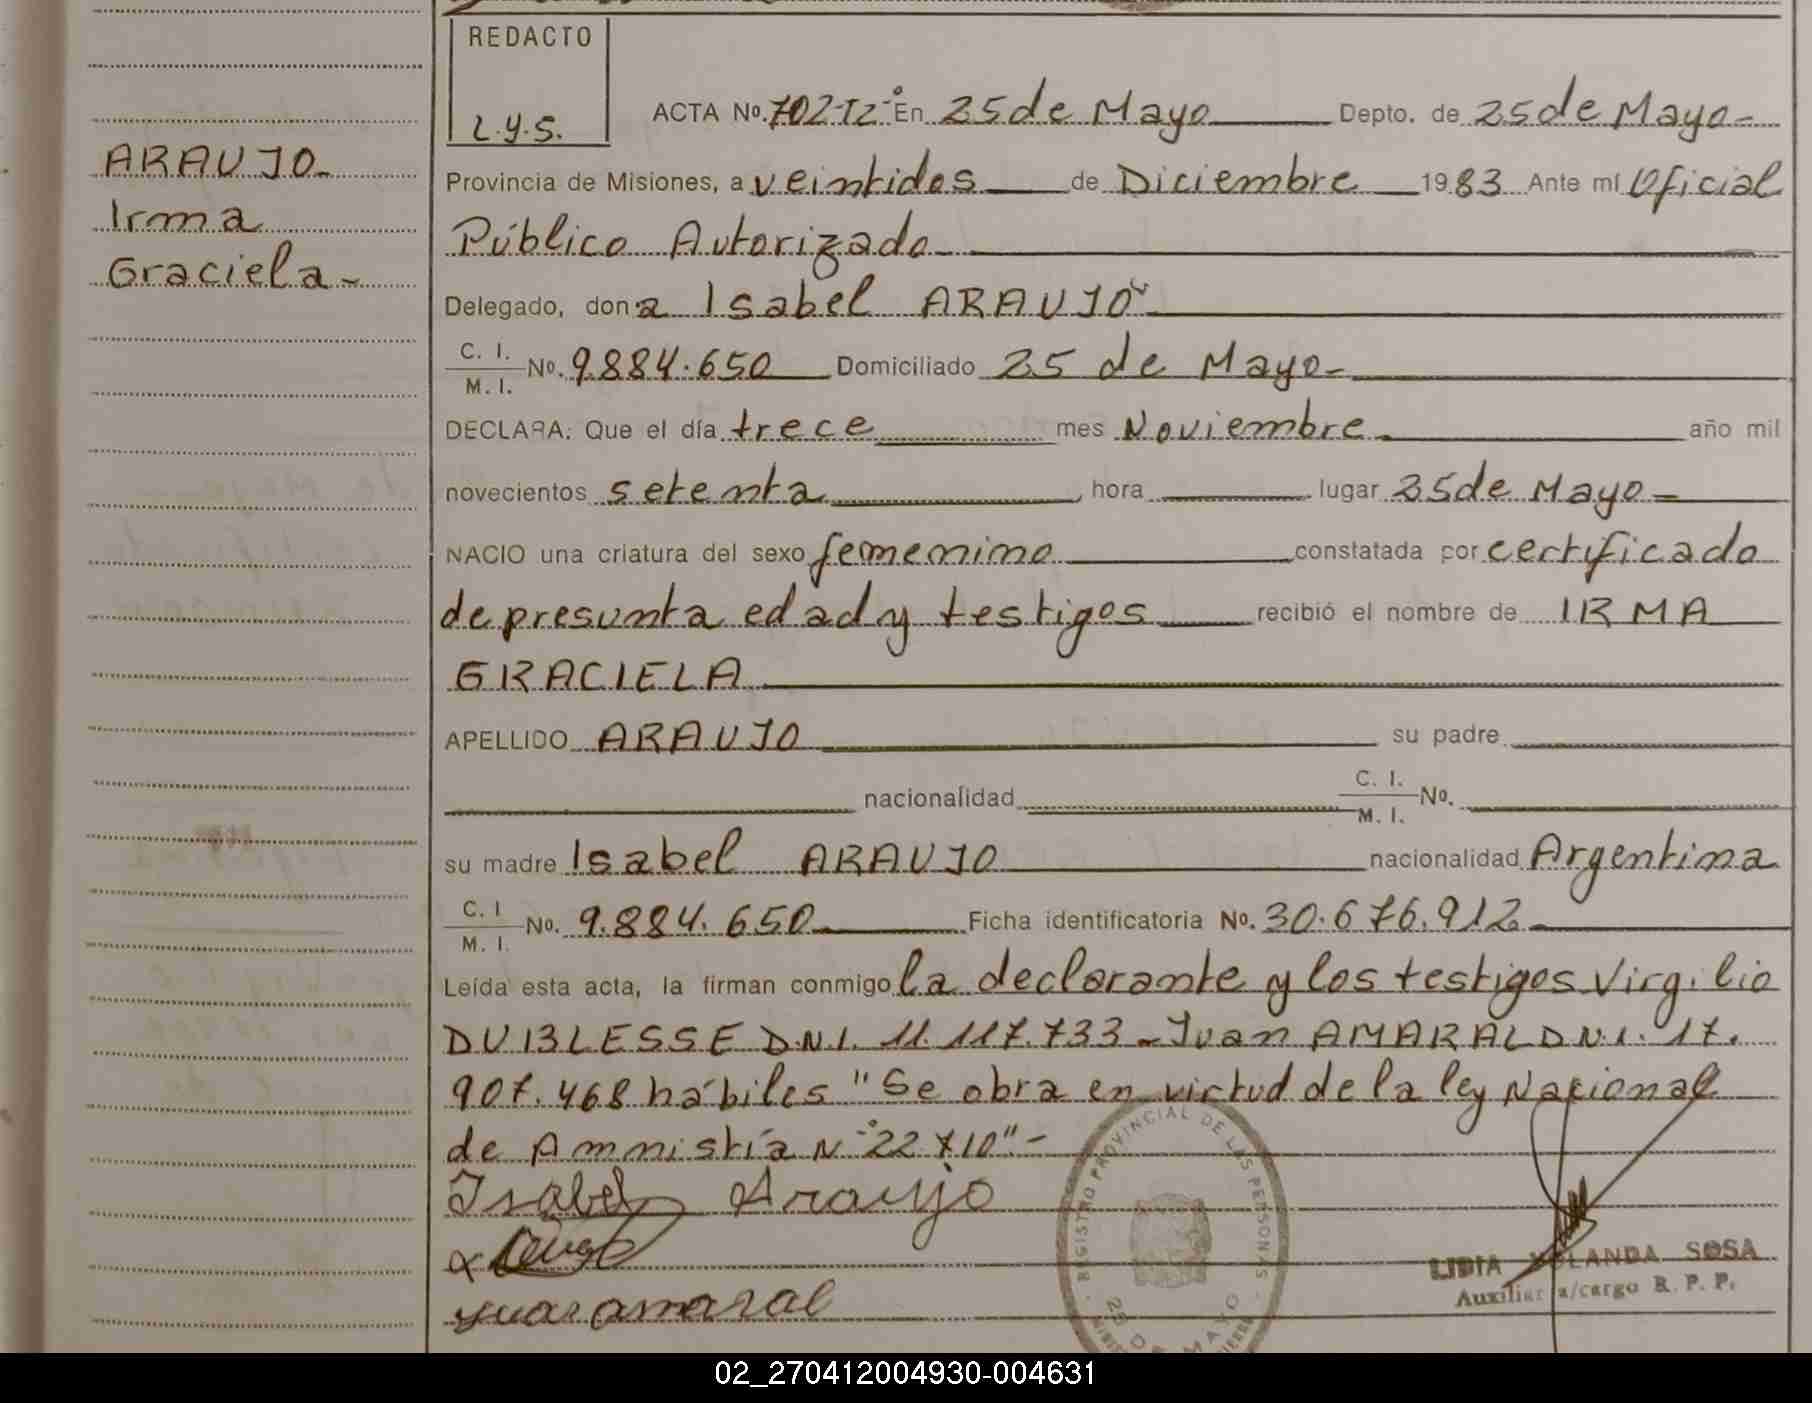 REDACTO
L.Y.S.
ACTA No. 702-Tº2-En 25 de Mayo Depto. de 25 de Mayo-
ARAUJO-
Irma
Graciela-
Provincia de Misiones, a veintidos de Diciembre 1983 Ante mí Oficial
Público Autorizado-
Delegado, dona Isabel ARAUJO-
C. I. / M. I. No. 9.884.650 Domiciliado 25 de Mayo-
DECLARA: Que el día trece mes Noviembre año mil
novecientos setenta, hora lugar 25 de Mayo-
NACIO una criatura del sexo femenino constatada por certificado
de presunta edad y testigos recibió el nombre de IRMA
GRACIELA
APELLIDO ARAUJO su padre
nacionalidad C. I. / M. I. No.
su madre Isabel ARAUJO nacionalidad Argentina
C. I / M. I. No. 9.884.650 Ficha identificatoria No. 30.676.912
Leída esta acta, la firman conmigo la declarante y los testigos Virgilio
DUBLESSE D.N.I. 11.117.733-Juan AMARAL D.N.I. 17.
907.468 hábiles "Se obra en virtud de la ley Nacional
de Amnistía Nº 22710"-
Isabel Araujo
juan amaral
REGISTRO PROVINCIAL DE LAS PERSONAS
25 DE MAYO
LIDIA YOLANDA SOSA
Auxiliar a/cargo R. P. P.
02_270412004930-004631